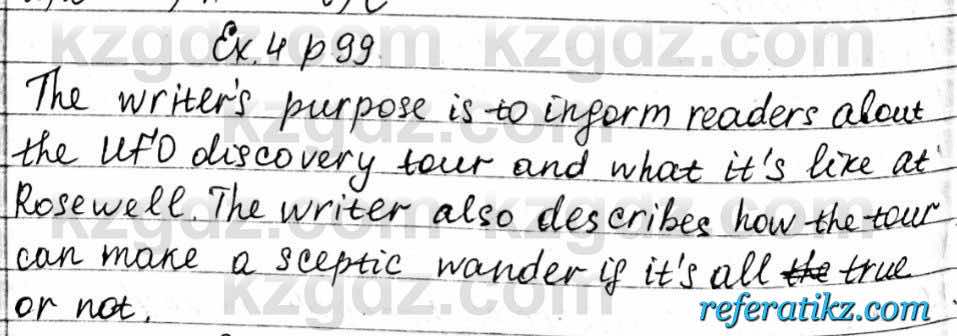 Ex. 4 p 99.
The writer's purpose is to inform readers about
the UFO discovery tour and what it's like at
Rosewell. The writer also describes how the tour
can make a sceptic wander if it's all the true
or not.
kzgdz.com
referatikz.com